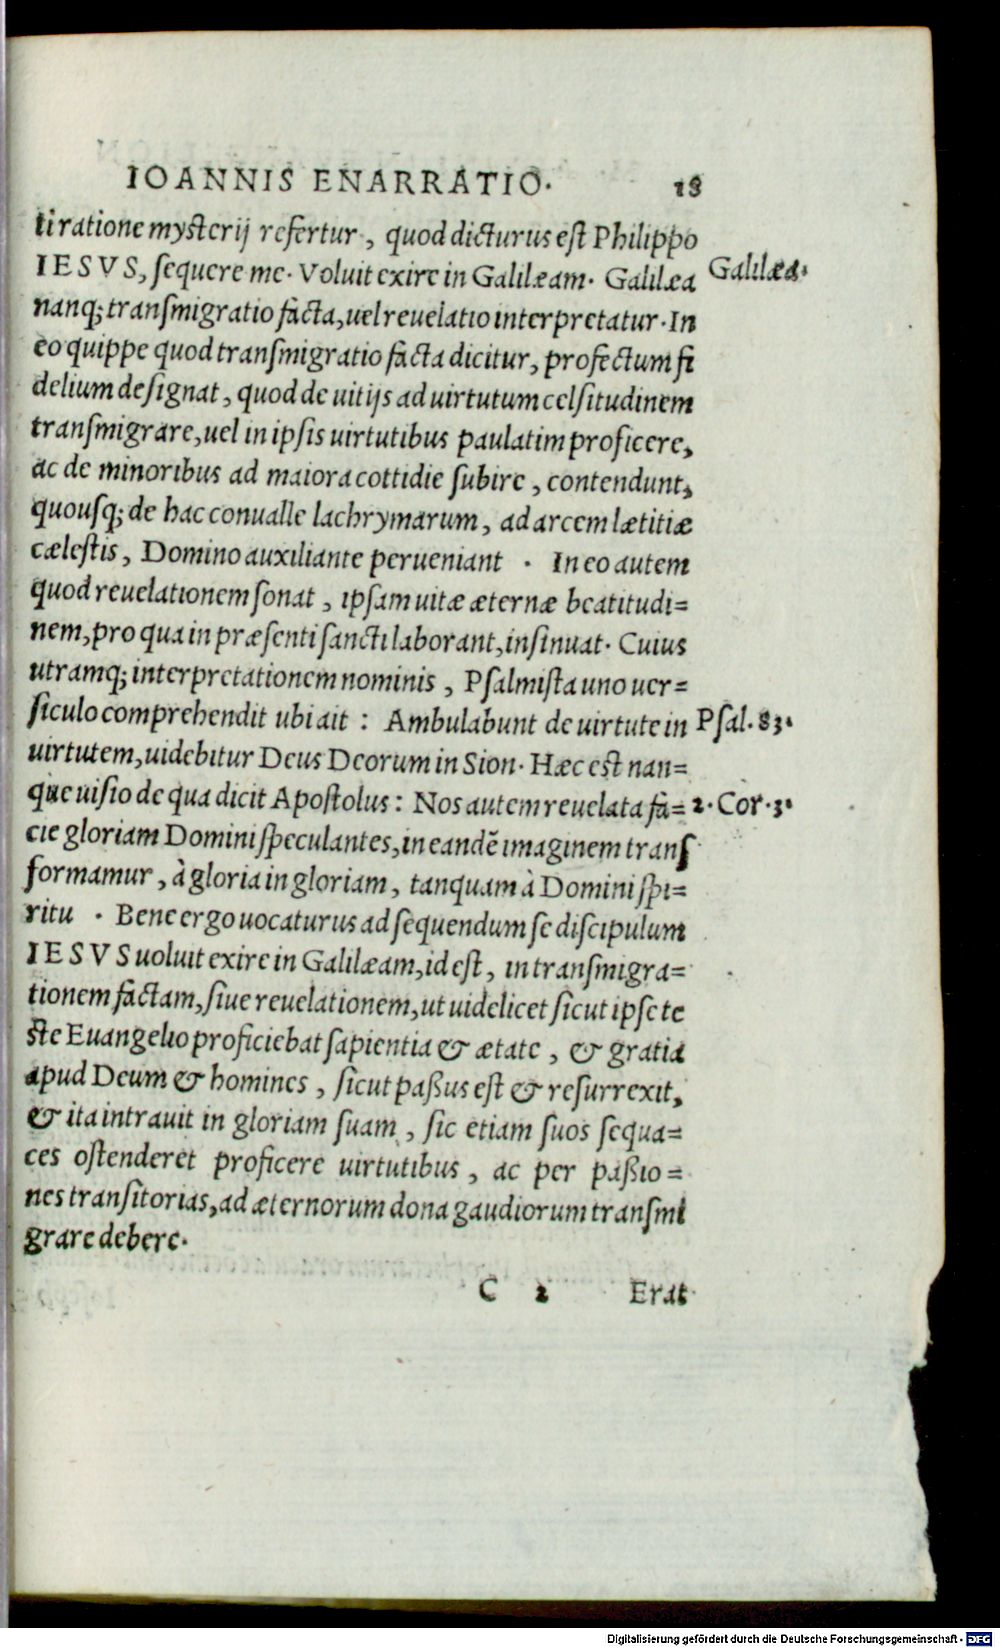 IOANNIS ENARRATIO. 18
ti ratione mysterij refertur, quod dicturus est Philippo
IESVS, sequere me. Voluit exire in Galilæam. Galilæa Galilæa.
nanq; transmigratio facta, uel reuelatio interpretatur. In
eo quippe quod transmigratio facta dicitur, profectum fi
delium designat, quod de uitijs ad uirtutum celsitudinem
transmigrare, uel in ipsis uirtutibus paulatim proficere,
ac de minoribus ad maiora cottidie subire, contendunt,
quousq; de hac conualle lachrymarum, ad arcem lætitiæ
cælestis, Domino auxiliante perueniant. In eo autem
quod reuelationem sonat, ipsam uitæ æternæ beatitudi=
nem, pro qua in præsenti sancti laborant, insinuat. Cuius
utramq; interpretationem nominis, Psalmista uno uer=
siculo comprehendit ubi ait: Ambulabunt de uirtute in Psal. 83.
uirtutem, uidebitur Deus Deorum in Sion. Hæc est nan=
que uisio de qua dicit Apostolus: Nos autem reuelata fa= 2. Cor. 3.
cie gloriam Domini speculantes, in eandẽ imaginem trans
formamur, à gloria in gloriam, tanquam à Domini spi=
ritu. Bene ergo uocaturus ad sequendum se discipulum
IESVS uoluit exire in Galilæam, id est, in transmigra=
tionem factam, siue reuelationem, ut uidelicet sicut ipse te
ste Euangelio proficiebat sapientia & ætate, & gratia
apud Deum & homines, sicut paßus est & resurrexit,
& ita intrauit in gloriam suam, sic etiam suos sequa=
ces ostenderet proficere uirtutibus, ac per paßio=
nes transitorias, ad æternorum dona gaudiorum transmi
grare debere.
C 2 Erat
Digitalisierung gefördert durch die Deutsche Forschungsgemeinschaft - DFG